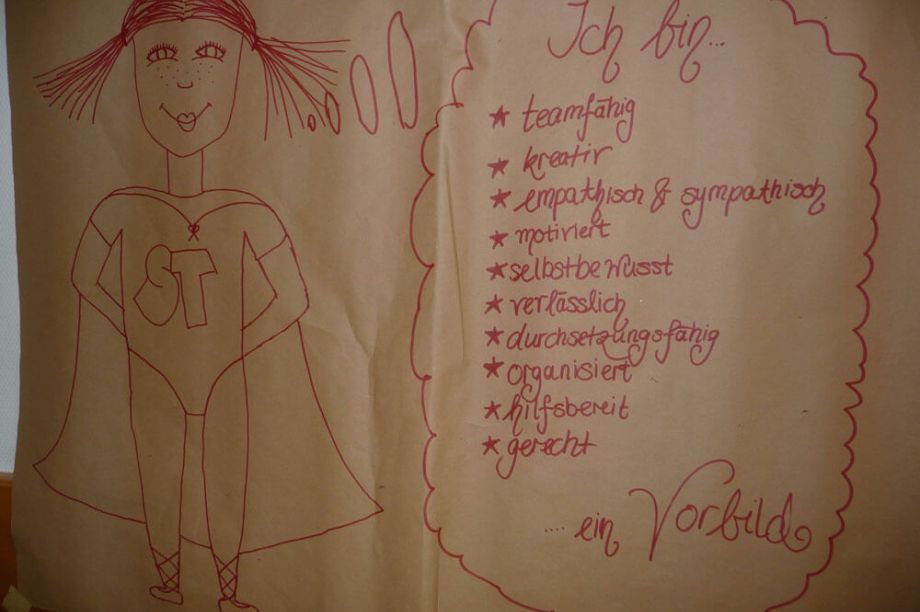 ST
Ich bin...
★ teamfähig
★ kreativ
★ empathisch & sympathisch
★ motiviert
★ selbstbewusst
★ verlässlich
★ durchsetzungsfähig
★ organisiert
★ hilfsbereit
★ gerecht
.... ein Vorbild